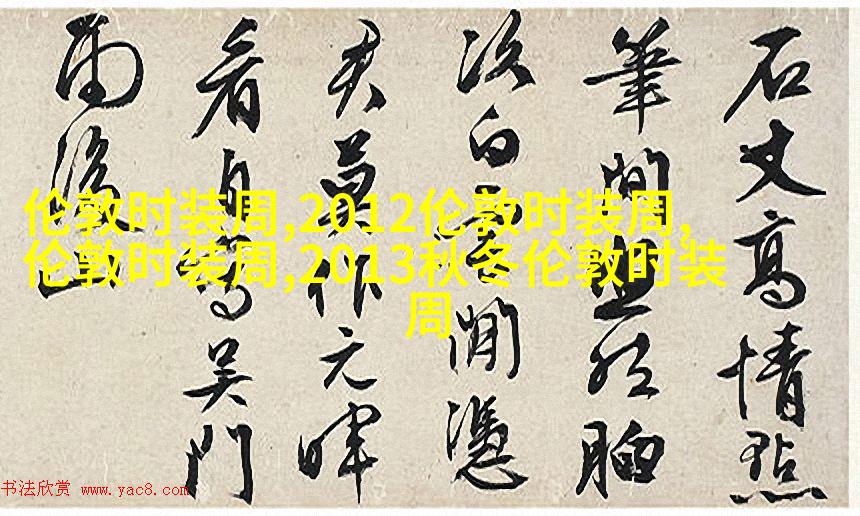 石丈高情點
筆間胸
次白雲閒憑
君莫作元暉
看自寫吳門
雨後山
伦敦时装周,2012伦敦时装周,
伦敦时装周,2013秋冬伦敦时装
周
书法欣赏 www.yac8.com